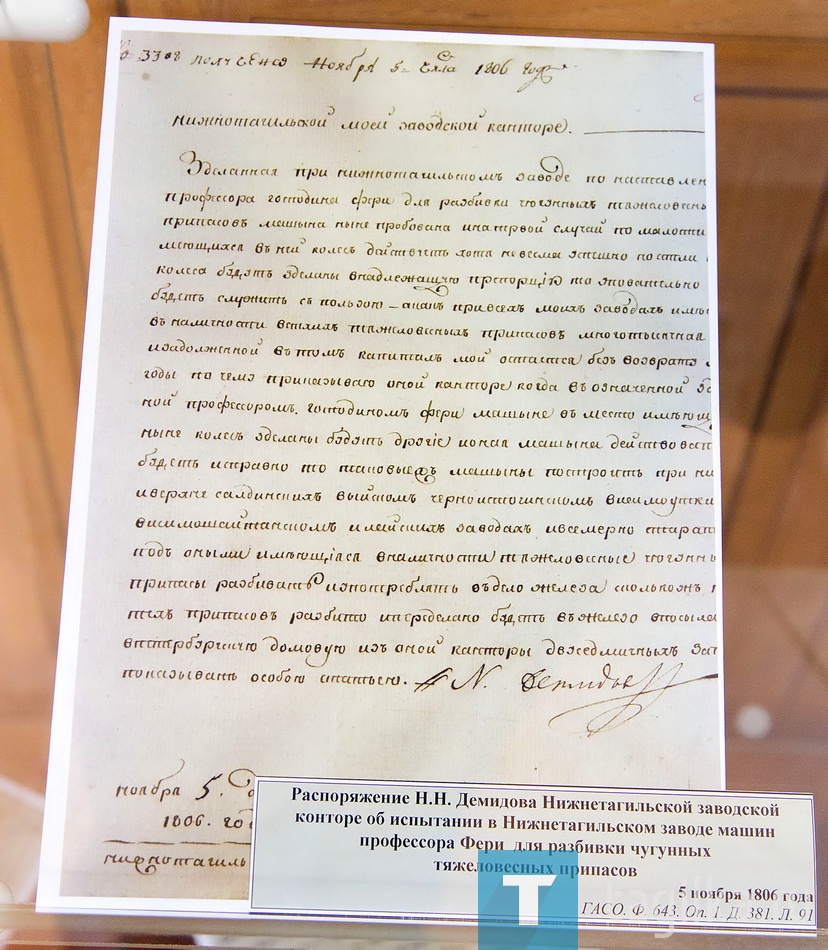 3308 полученъ Ноября 5. Сего 1806 году
Нижнотагильской моей заводской канторе).
Зделанная при нижнотагильскомъ заводе по наставлен
профессора господина фери для разбивки чюгунныхъ тяжеловесны
припасовъ машына ныне пробована инапервой случай по малости
меющихся въ ней колесъ действуетъ хотя невесма успешно но стли
колеса будутъ зделаны внадлежащую препорцiю то уповательно
будетъ служить съ пользою – акакъ привсехъ моихъ заводахъ имею
въ наличности всехъ тяжеловесныхъ припасовъ многотысячная
изадолженной въ томъ капиталъ мой остается безъ возврату
годы по чему приказываю оной канторе когда въ означенной
ной профессоромъ. господиномъ фери машыне въ место имеющ
ныне колесъ зделаны будутъ другiе ионая машына действоват
будетъ исправно то таковыеж машыны построить при ни
иверхне салдинскихъ выйскомъ черноисточинскомъ висимоутки
висимошайтанскомъ илайскихъ заводахъ ивсемерно старат
подъ оными имеющiяся вналичности тяжеловесные чюгунны
припасы разбивать иупотреблять въдело железа сколькожъ
техъ припасовъ разбито ипеределано будетъ въжелезо впосыла
впетербургскую домовую изъ оной канторы двуседмичныхъ
показывать особою статьею. N. Демидовъ
ноября 5. д
1806. год
нижнотагиль
Распоряжение Н.Н. Демидова Нижнетагильской заводской
конторе об испытании в Нижнетагильском заводе машин
профессора Фери для разбивки чугунных
тяжеловесных припасов
5 ноября 1806 года
ГАСО. Ф. 643. Оп. 1. Д. 381. Л. 91
T